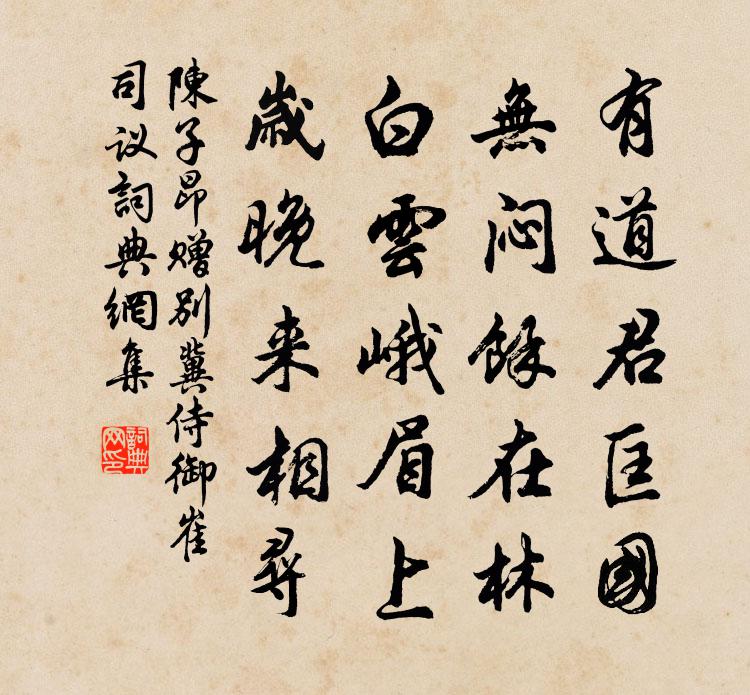 有道君匡國
無悶餘在林
白雲峨眉上
歲晚来相尋
陳子昂赠别冀侍御崔
司议詞典網集
詞典网印